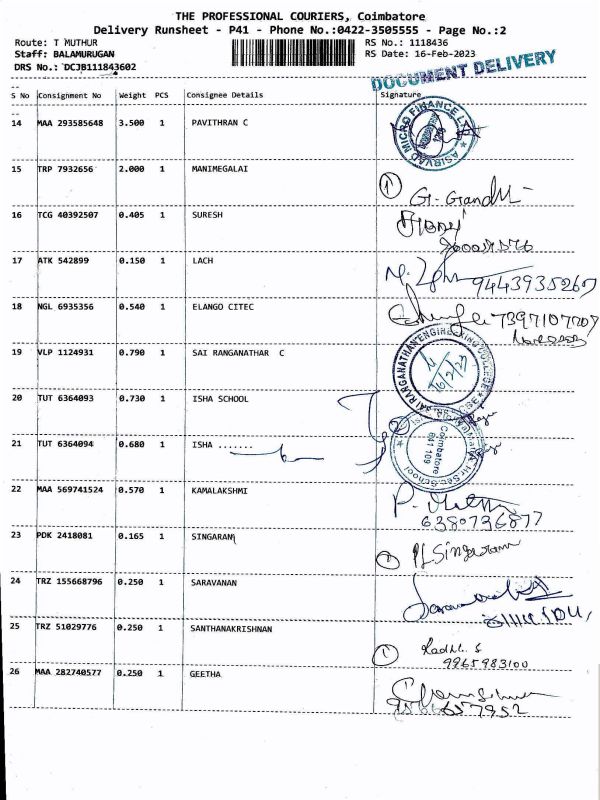 THE PROFESSIONAL COURIERS, Coimbatore
Delivery Runsheet - P41 - Phone No.:0422-3505555 - Page No.:2
Route: T MUTHUR
RS No.: 1118436
Staff: BALAMURUGAN
RS Date: 16-Feb-2023
DRS No.: DCJB111843602
DOCUMENT DELIVERY
S No Consignment No Weight PCS Consignee Details Signature
14 MAA 293585648 3.500 1 PAVITHRAN C
ASIRVAD MICRO FINANCE LTD
15 TRP 7932656 2.000 1 MANIMEGALAI
1 G. Gandhi
16 TCG 40392507 0.405 1 SURESH
17 ATK 542899 0.150 1 LACH
9443935267
18 NGL 6935356 0.540 1 ELANGO CITEC
7397107707
19 VLP 1124931 0.790 1 SAI RANGANATHAR C
RANGANATHAN ENGINEERING COLLEGE
16/2/23
20 TUT 6364093 0.730 1 ISHA SCHOOL
21 TUT 6364094 0.680 1 ISHA .......
Hr.Sec.School
Coimbatore
641 109
22 MAA 569741524 0.570 1 KAMALAKSHMI
6380736877
23 PDK 2418081 0.165 1 SINGARAM
1 Singaram
24 TRZ 155668796 0.250 1 SARAVANAN
25 TRZ 51029776 0.250 1 SANTHANAKRISHNAN
1 Radhi. S
9965983100
26 MAA 282740577 0.250 1 GEETHA